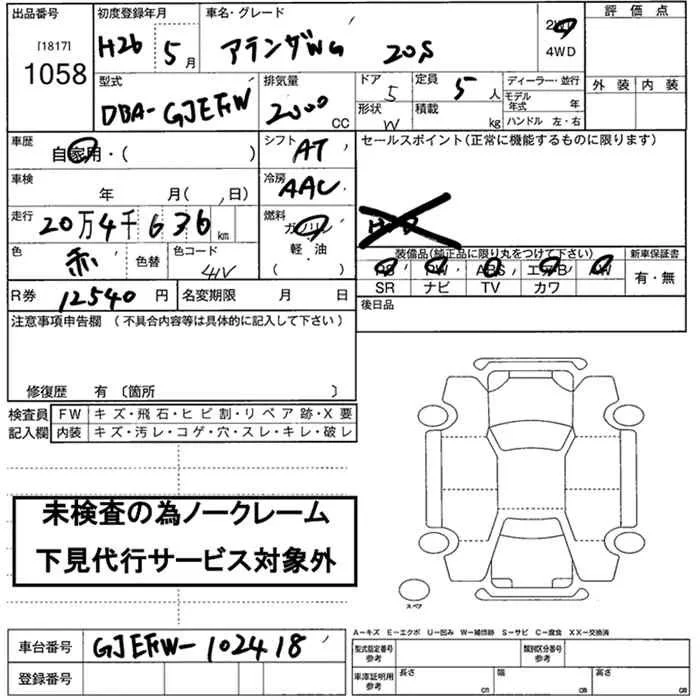 出品番号 初度登録年月 車名・グレード 評価点
[1817] H26 5月 アテンザWG 20S 2WD
1058 4WD
型式 排気量 ドア 5 定員 5人 ディーラー・並行 外装 内装
DBA-GJEFW 2000CC 形状 W 積載 kg モデル年式 年
ハンドル 左・右
車歴 自家用・( ) シフト AT セールスポイント(正常に機能するものに限ります)
車検 年 月( 日) 冷房 AAC
走行 20万4千636km 燃料 ガソリン
軽・油
( )
色 赤 色替 色コード 41V 装備品(純正品に限り丸をつけて下さい) 新車保証書
PS PW ABS エアB AW 有・無
R券 12540円 名変期限 月 日 SR ナビ TV カワ
後日品
注意事項申告欄(不具合内容等は具体的に記入して下さい)
修復歴 有〔箇所 〕
検査員 FW キズ・飛石・ヒビ割・リペア跡・X要
記入欄 内装 キズ・汚レ・コゲ・穴・スレ・キレ・破レ
未検査の為ノークレーム
下見代行サービス対象外
スペア
A-キズ E-エクボ U-凹み W-補修跡 S-サビ C-腐食 XX-交換済
車台番号 GJEFW-102418 型式指定番号 参考 類別区分番号 参考
登録番号 車庫証明用 参考 長さ cm 幅 cm 高さ cm